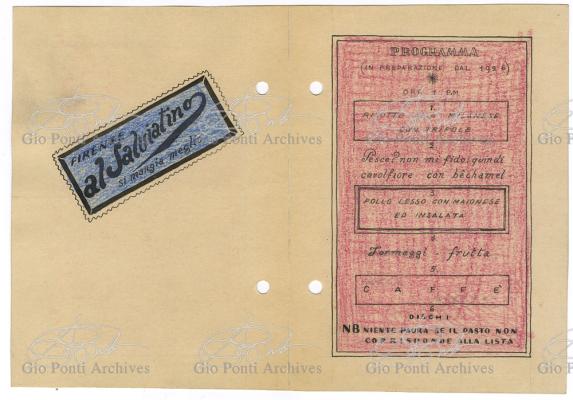 FIRENZE
al Salviatino
si mangia meglio
PROGRAMMA
(IN PREPARAZIONE DAL 1936)
ORE 1 PM
1.
RISOTTO ALLA MILANESE
CON TRIFOLE
2.
Pesce? non mi fido, quindi
cavolfiore con béchamel
3.
POLLO LESSO CON MAIONESE
ED INSALATA
4.
Formaggi - frutta
5.
CAFFE'
6.
DISCHI
NB NIENTE PAURA SE IL PASTO NON
CORRISPONDE ALLA LISTA
Gio Ponti Archives
Gio Ponti Archives
Gio Ponti Archives
Gio Ponti Archives
Gio Ponti Archives
Gio Ponti Archives